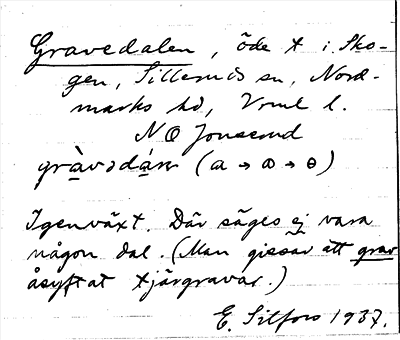 Gravedalen, öde t i Sko-
gen, Silleruds sn, Nord-
marks hd, Vrml l.
N O Jonserud
gràvədàn (a → ɑ → ɵ)
Igenväxt. Där säges ej vara
någon dal. (Man gissar att grav
åsyftat tjärgravar.)
E. Silfors 1937.